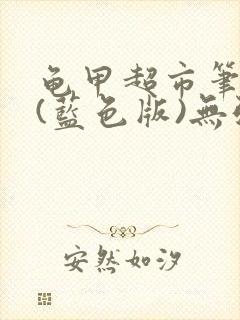 龟甲超市筆
(藍色版)無
安然如汐